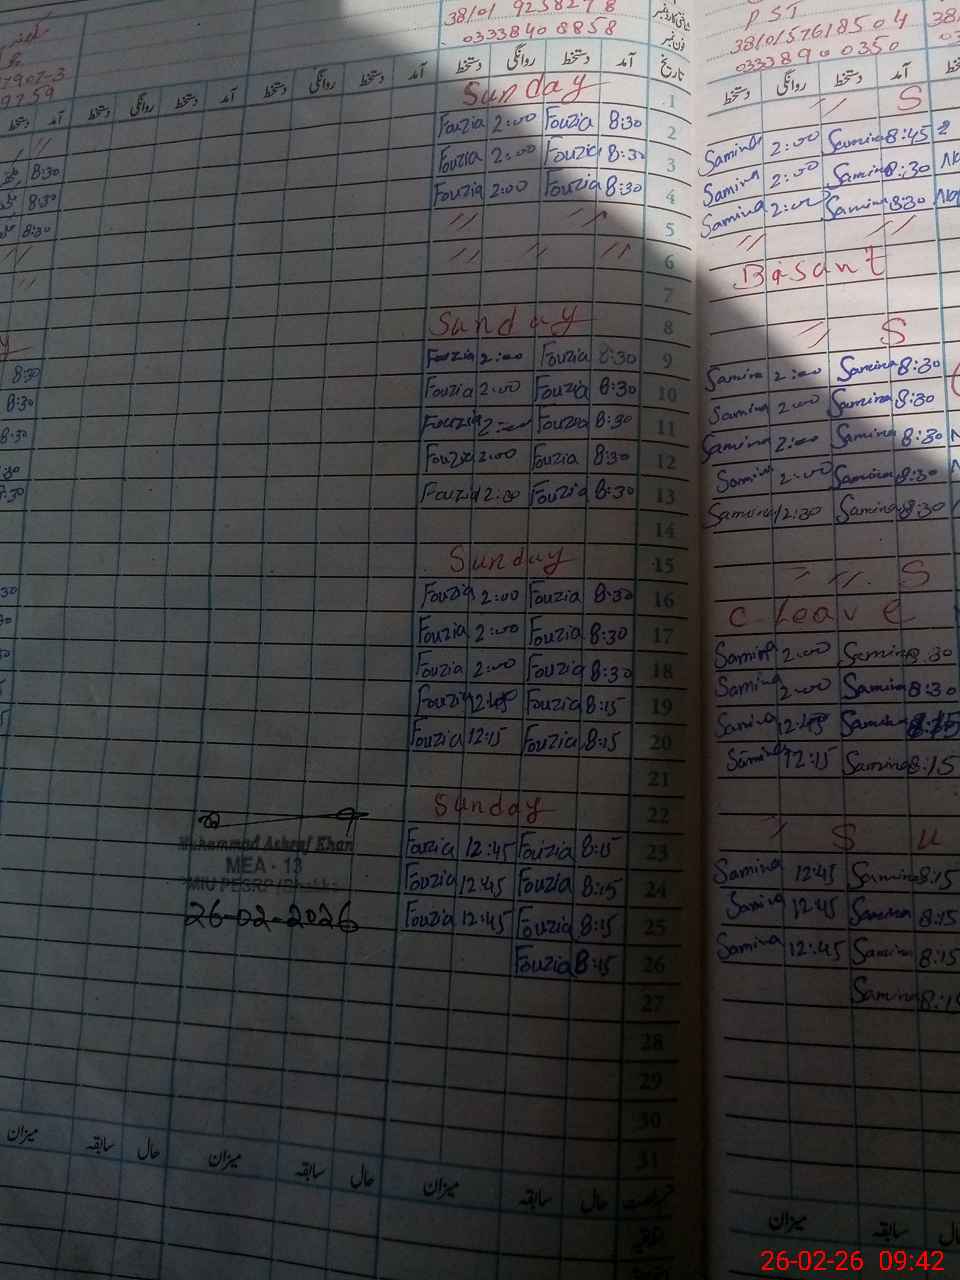 38101 9258278
03338408858
شناختی کارڈ نمبر
فون نمبر
دستخط آمد دستخط روانگی دستخط آمد دستخط روانگی دستخط آمد تاریخ
Sunday 1
Fouzia 2:00 Fouzia 8:30 2
Fouzia 2:00 Fouzia 8:30 3
Fouzia 2:00 Fouzia 8:30 4
// // // 5
// // // 6
7
Sunday 8
Fouzia 2:00 Fouzia 8:30 9
Fouzia 2:00 Fouzia 8:30 10
Fouzia 2:00 Fouzia 8:30 11
Fouzia 2:00 Fouzia 8:30 12
Fouzia 2:00 Fouzia 8:30 13
14
Sunday 15
Fouzia 2:00 Fouzia 8:30 16
Fouzia 2:00 Fouzia 8:30 17
Fouzia 2:00 Fouzia 8:30 18
Fouzia Fouzia 8:15 19
Fouzia 12:15 Fouzia 8:15 20
21
Sunday 22
Fouzia 12:45 Fouzia 8:15 23
Fouzia 12:45 Fouzia 8:15 24
Fouzia 12:45 Fouzia 8:15 25
Fouzia 8:15 26
27
28
29
30
31
میزان سابقہ حال میزان سابقہ حال میزان سابقہ حال
Muhammad Ashraf Khan
MEA - 13
26-02-2026
8:30
8:30
8:30
8:30
8:30
8:30
PST
3810157618504
03338900350
دستخط روانگی دستخط آمد
// S
Samina 2:00 Samina 8:45
Samina 2:00 Samina 8:30
Samina 2:00 Samina 8:30
// //
Basant
// S
Samina 2:00 Samina 8:30
Samina 2:00 Samina 8:30
Samina 2:00 Samina 8:30
Samina 2:00 Samina 8:30
Samina 12:30 Samina 8:30
// // S
C Leave
Samina 2:00 Samina 8:30
Samina 2:00 Samina 8:30
Samina Samina 8:15
Samina 12:15 Samina 8:15
S u
Samina 12:45 Samina 8:15
Samina 12:45 Samina 8:15
Samina 12:45 Samina 8:15
Samina
میزان سابقہ
26-02-26 09:42